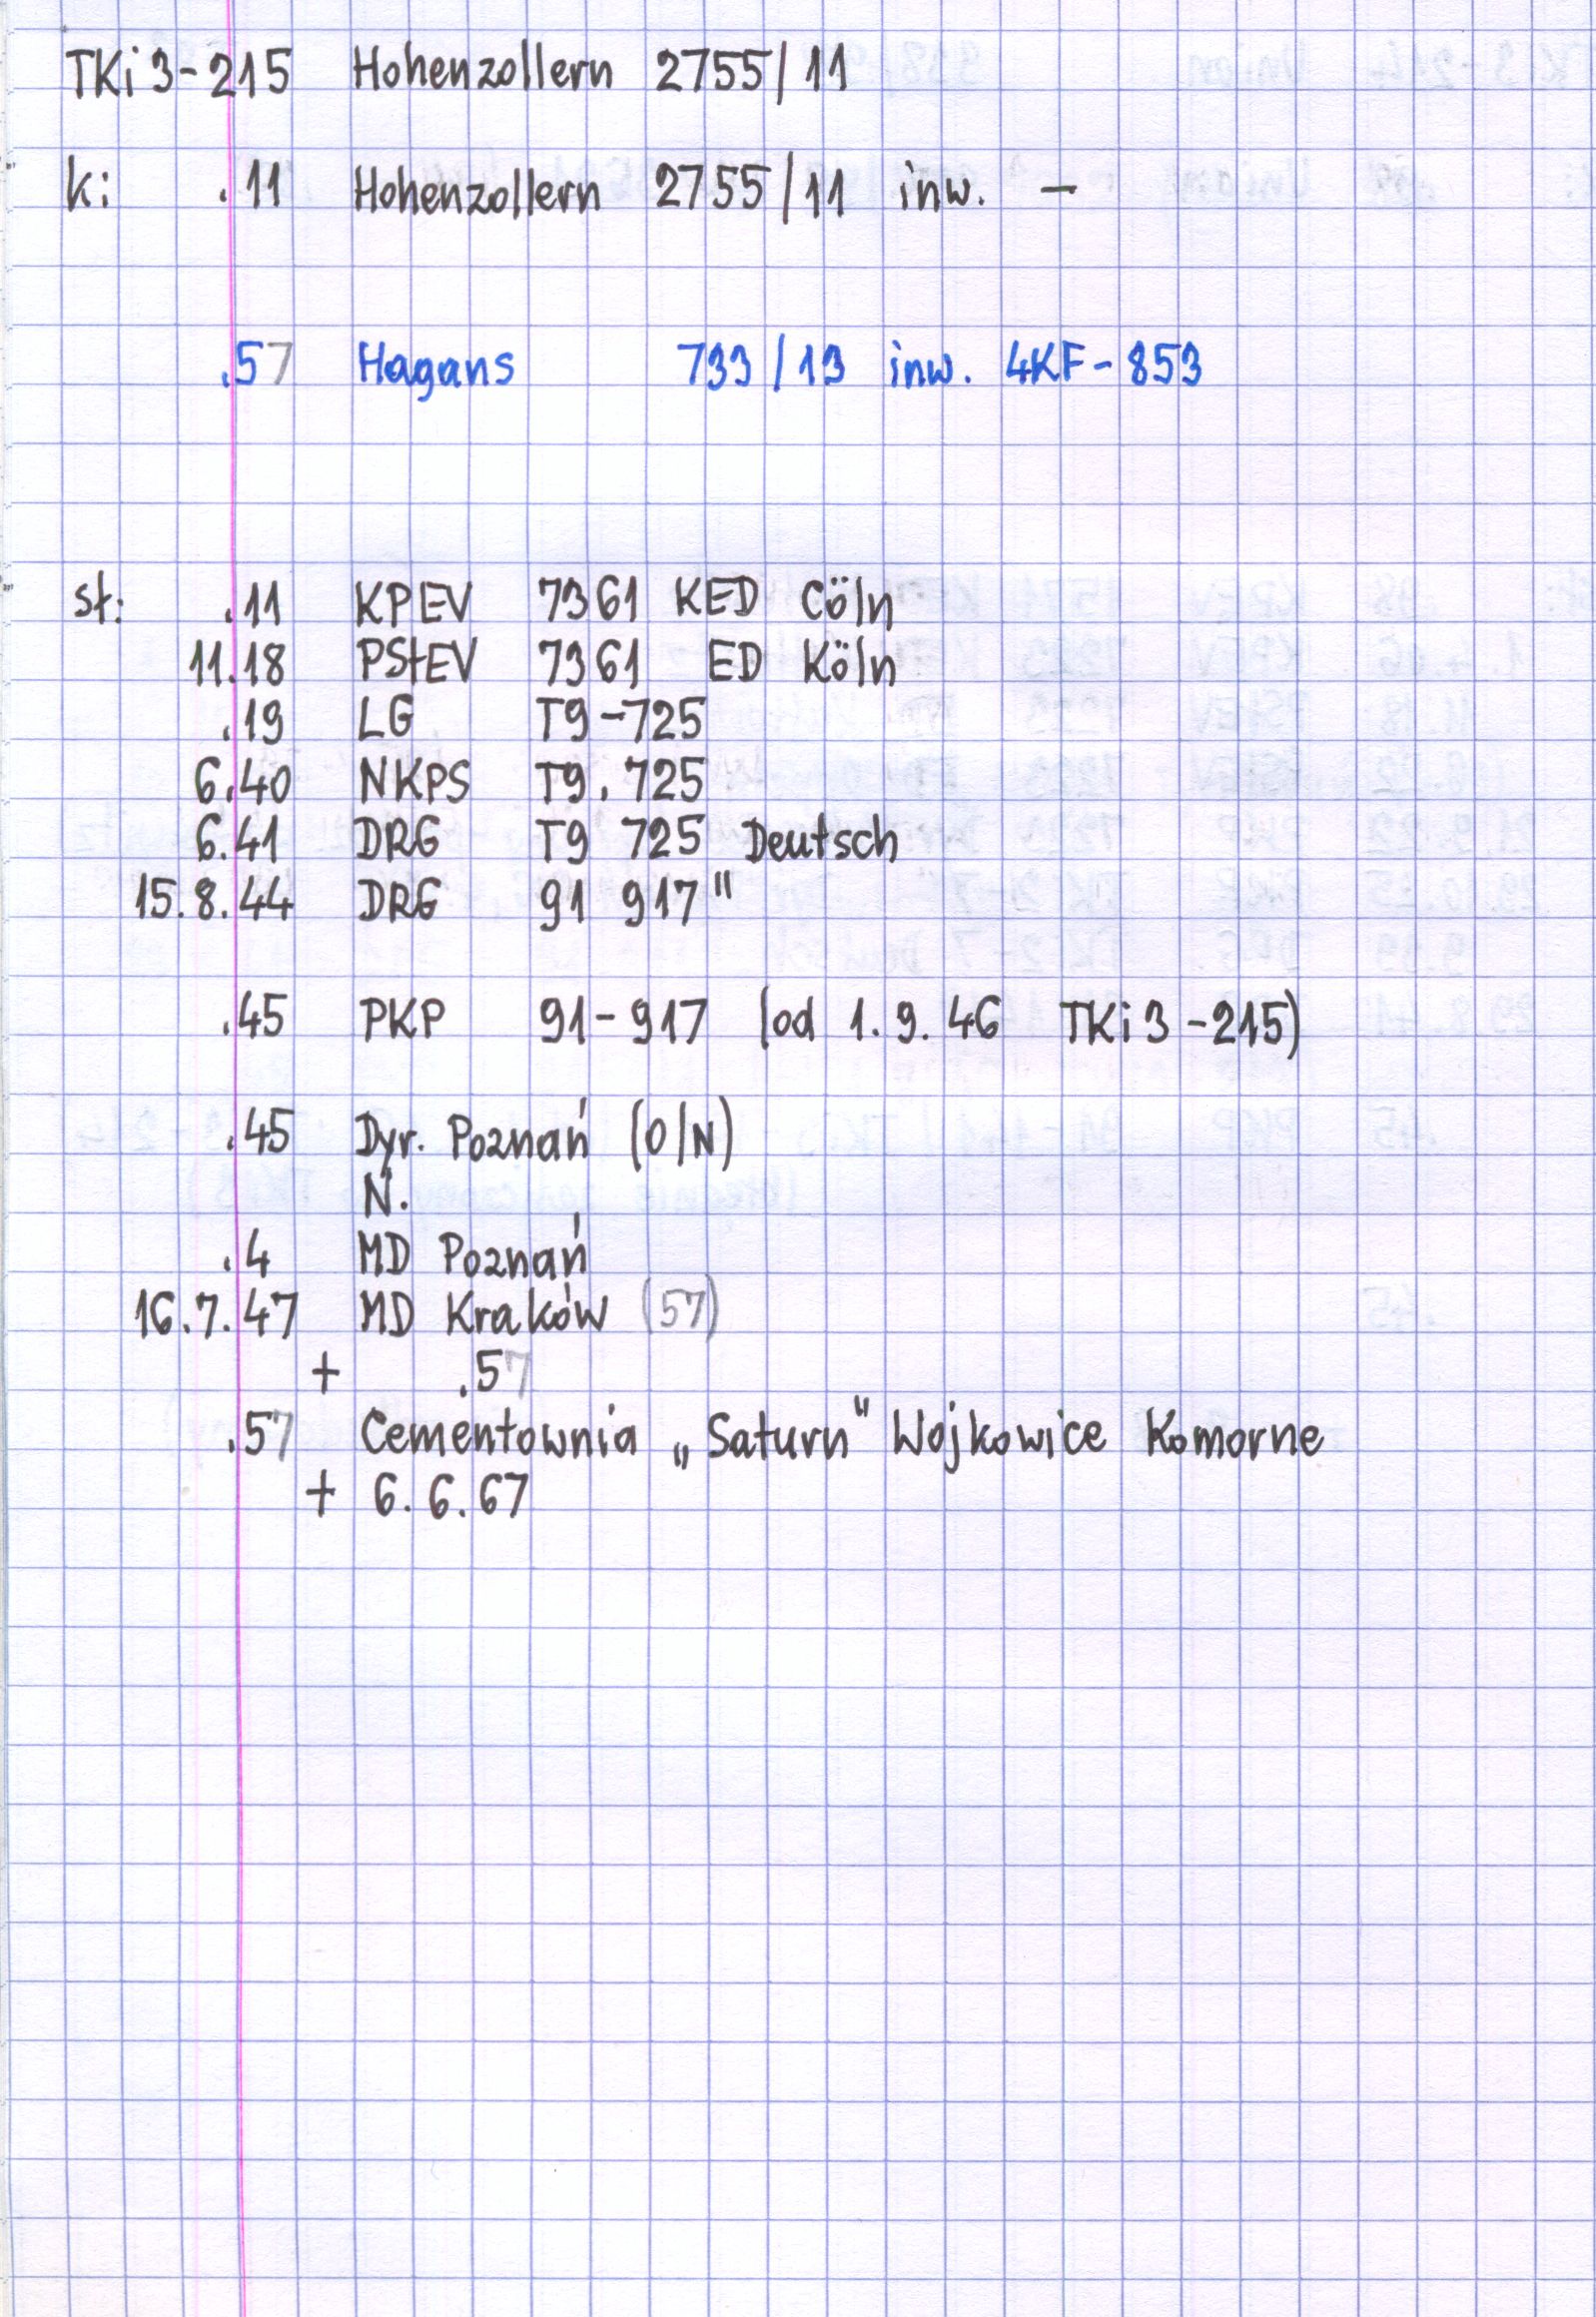 TKi3-215 Hohenzollern 2755/11
k: .11 Hohenzollern 2755/11 inw. -
.57 Hagans 733/13 inw. 4KF-853
st: .11 KPEV 7361 KED Cöln
11.18 PStEV 7361 ED Köln
.19 LG T9-725
6.40 NKPS T9.725
6.41 DRG T9 725 Deutsch
15.8.44 DRG 91 917"
.45 PKP 91-917 (od 1.9.46 TKi3-215)
.45 Dyr. Poznań (O/N)
N.
.4 MD Poznań
16.7.47 MD Kraków (57)
+ .57
.57 Cementownia „Saturn" Wojkowice Komorne
+ 6.6.67